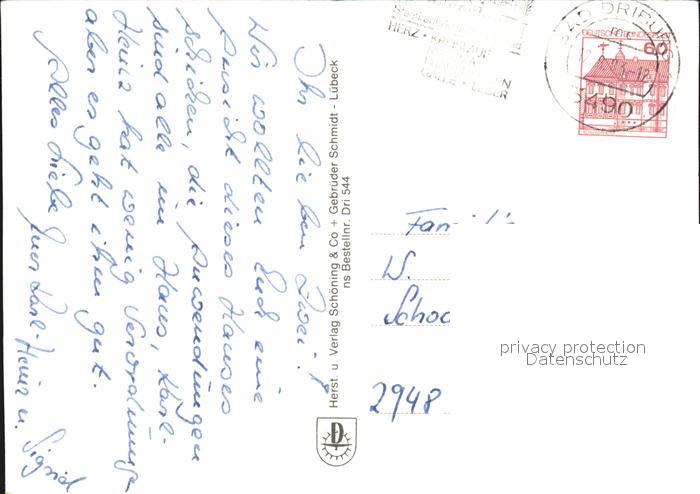 Ihr lieben Zwei!
Wir wollten Euch eine
Ansicht dieses Hauses
schicken, die Anwendungen
sind alle im Haus, Karl-
Heinz hat wenig Verordnung
aber es geht ihm gut.
Alles Liebe Eure Karl-Heinz u. Sigrid
Herst. u. Verlag Schöning & Co + Gebrüder Schmidt - Lübeck
ns Bestellnr. Dri 544
HERZ · KREISLAUF
LEBER
BAD DRIBURG
3490
DEUTSCHE BUNDES
60
Fam
W.
Schoc
2948
privacy protection
Datenschutz